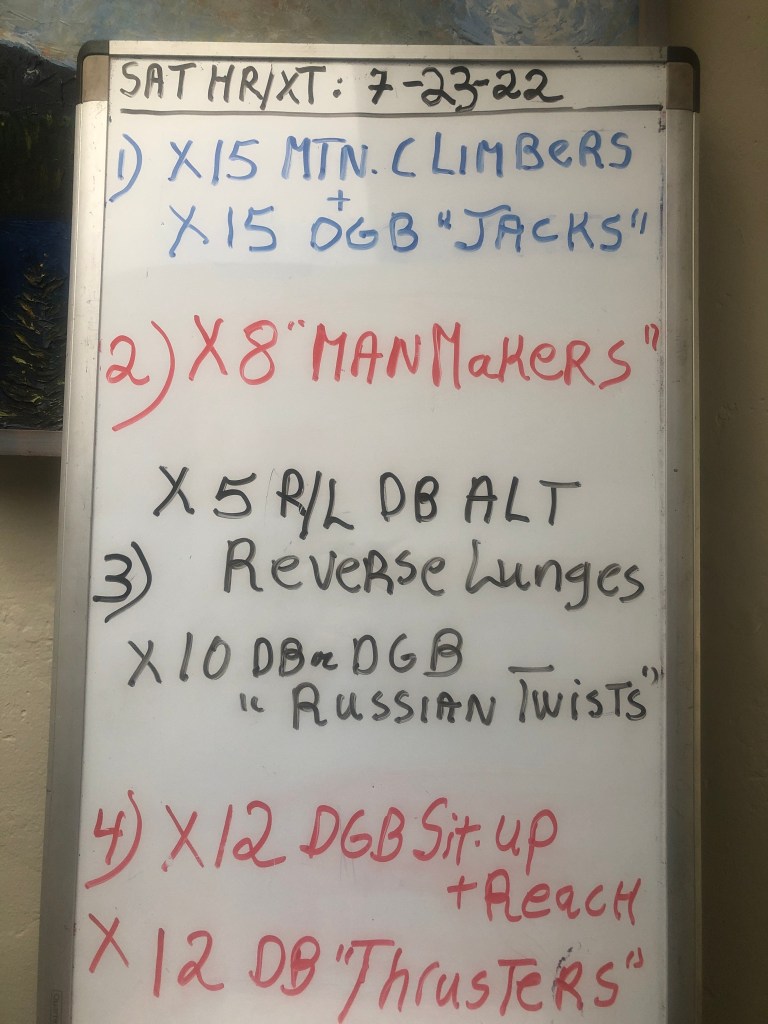 SAT HR/XT: 7-23-22
1) X15 MTN. CLIMBERS
+
X15 DGB "JACKS"
2) X8 "MANMAKERS"
X5 R/L DB ALT
3) Reverse Lunges
X10 DB or DGB
"RUSSIAN TwisTs"
4) X12 DGB Sit-up
+ReacH
X12 DB "ThrusTeRs"